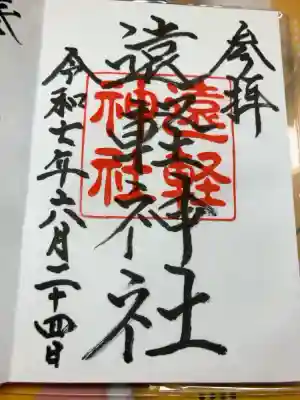 参拝
遠軽神社
遠軽
神社
令和七年六月二十四日